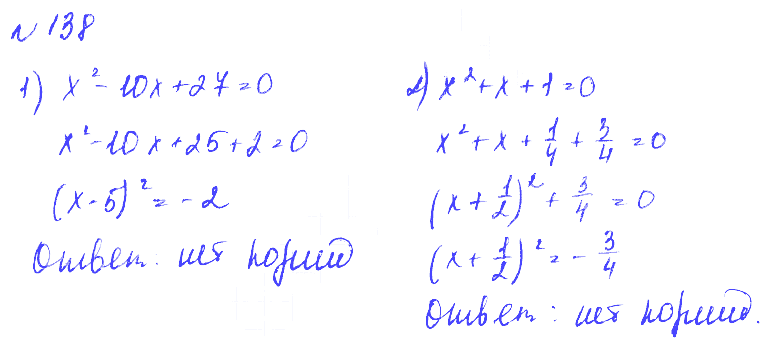 № 138
1) x² - 10x + 27 = 0
x² - 10x + 25 + 2 = 0
(x - 5)² = - 2
Ответ: нет корней
2) x² + x + 1 = 0
x² + x + 1/4 + 3/4 = 0
(x + 1/2)² + 3/4 = 0
(x + 1/2)² = - 3/4
Ответ: нет корней.